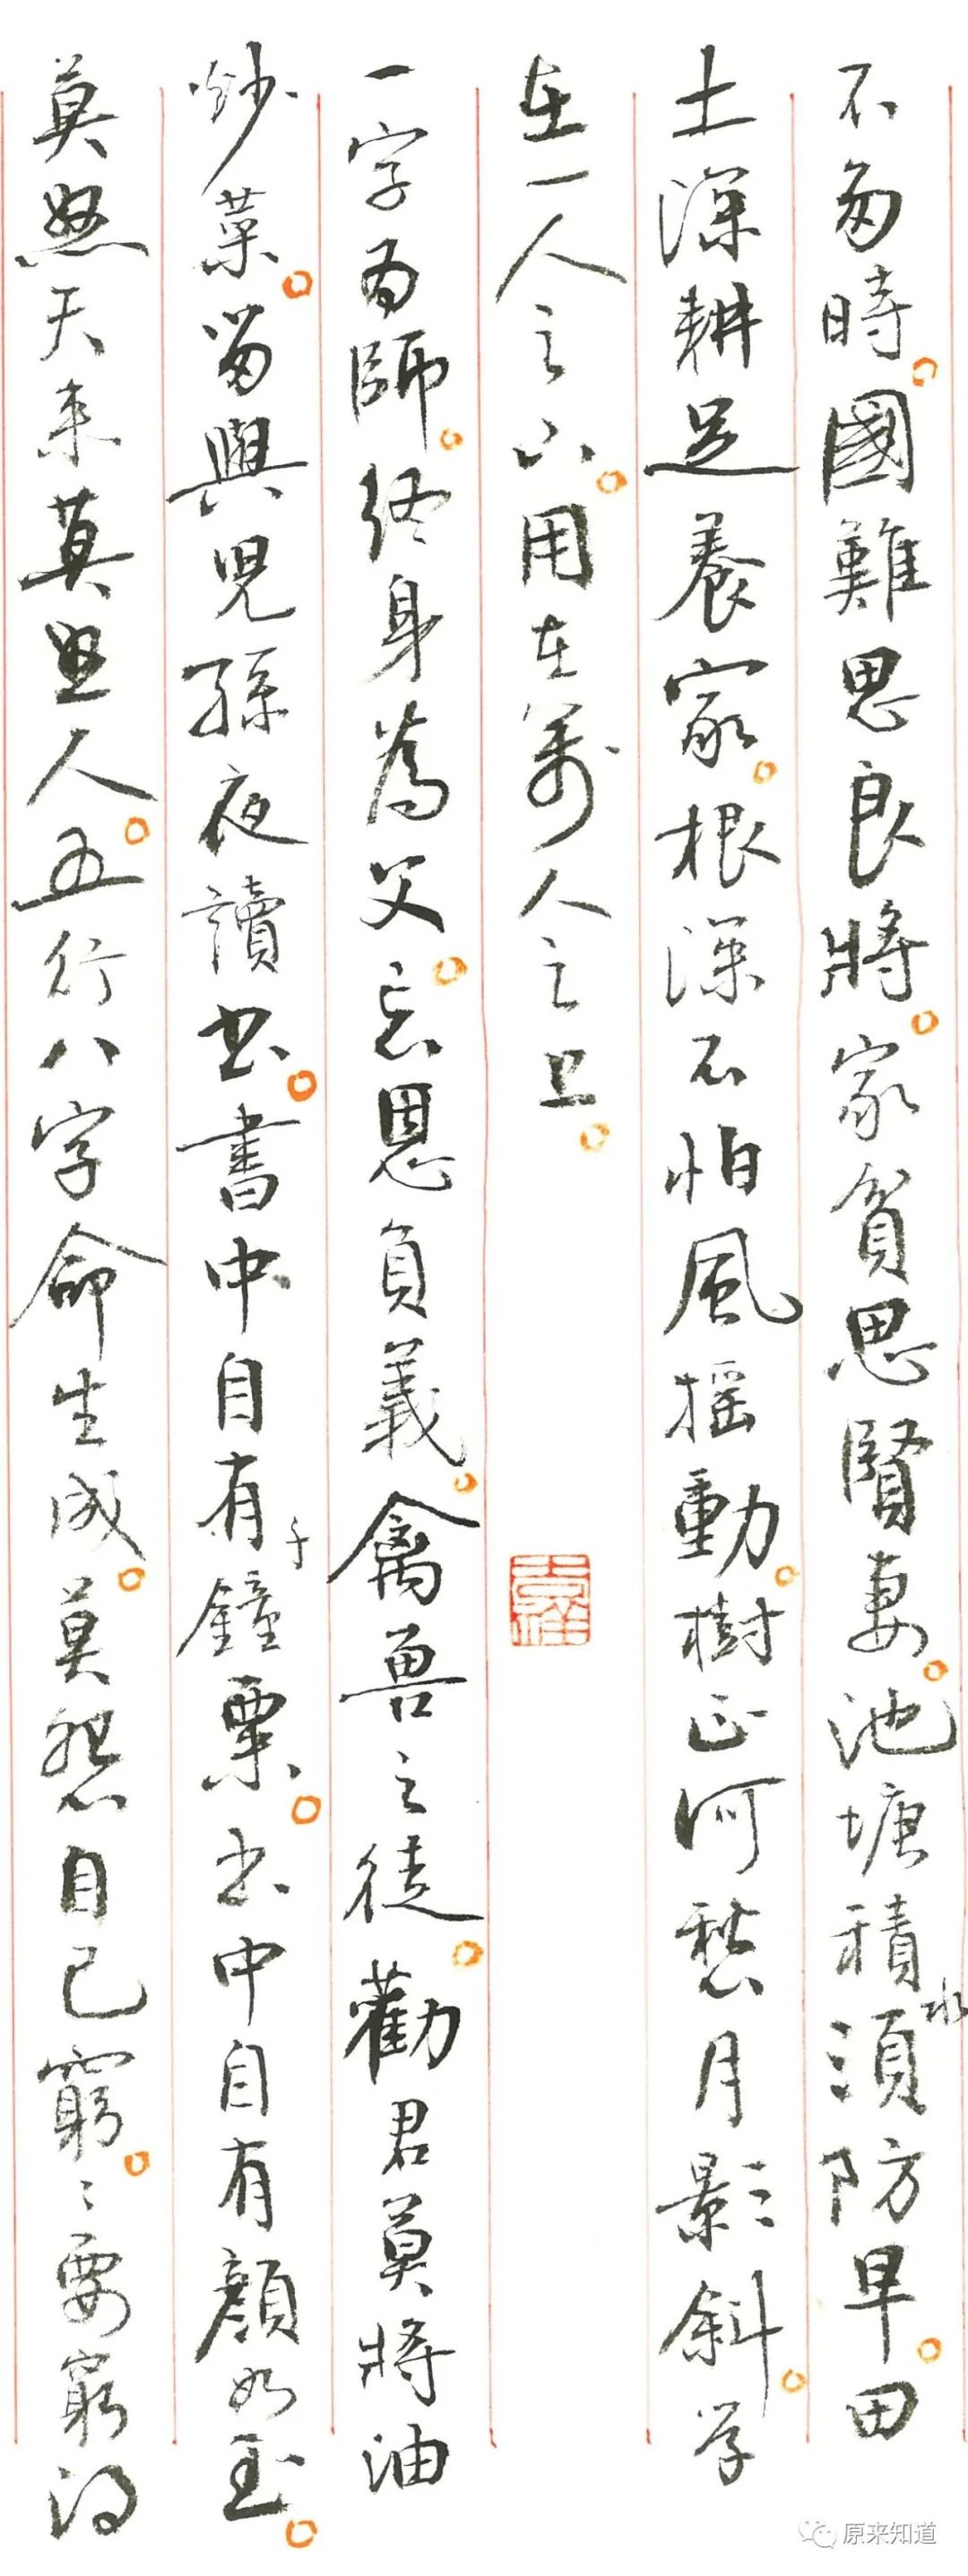 不多時。國難思良將。家貧思賢妻。池塘積水須防旱。田
土深耕足養家。根深不怕風摇動。樹正何愁月影斜。学
在一人之下。用在萬人之上。
一字为師。終身為父。忘恩負義。禽兽之徒。勸君莫將油
炒菜。留與兒孫夜讀书。書中自有千鐘粟。书中自有顏如玉。
莫怨天来莫怨人。五行八字命生成。莫怨自己窮。々要窮得
原来知道